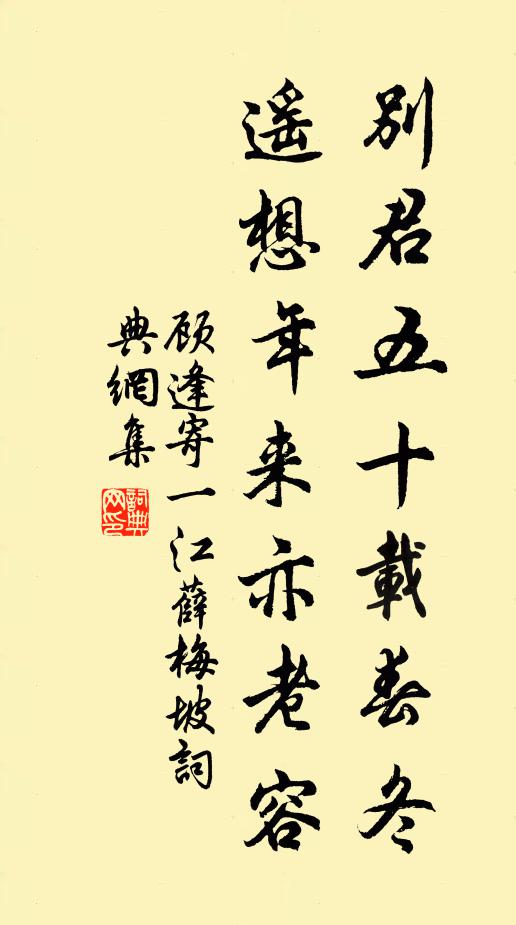 別君五十載春冬
遥想年来亦老容
顾逢寄一江薛梅坡詞
典網集
詞典网印